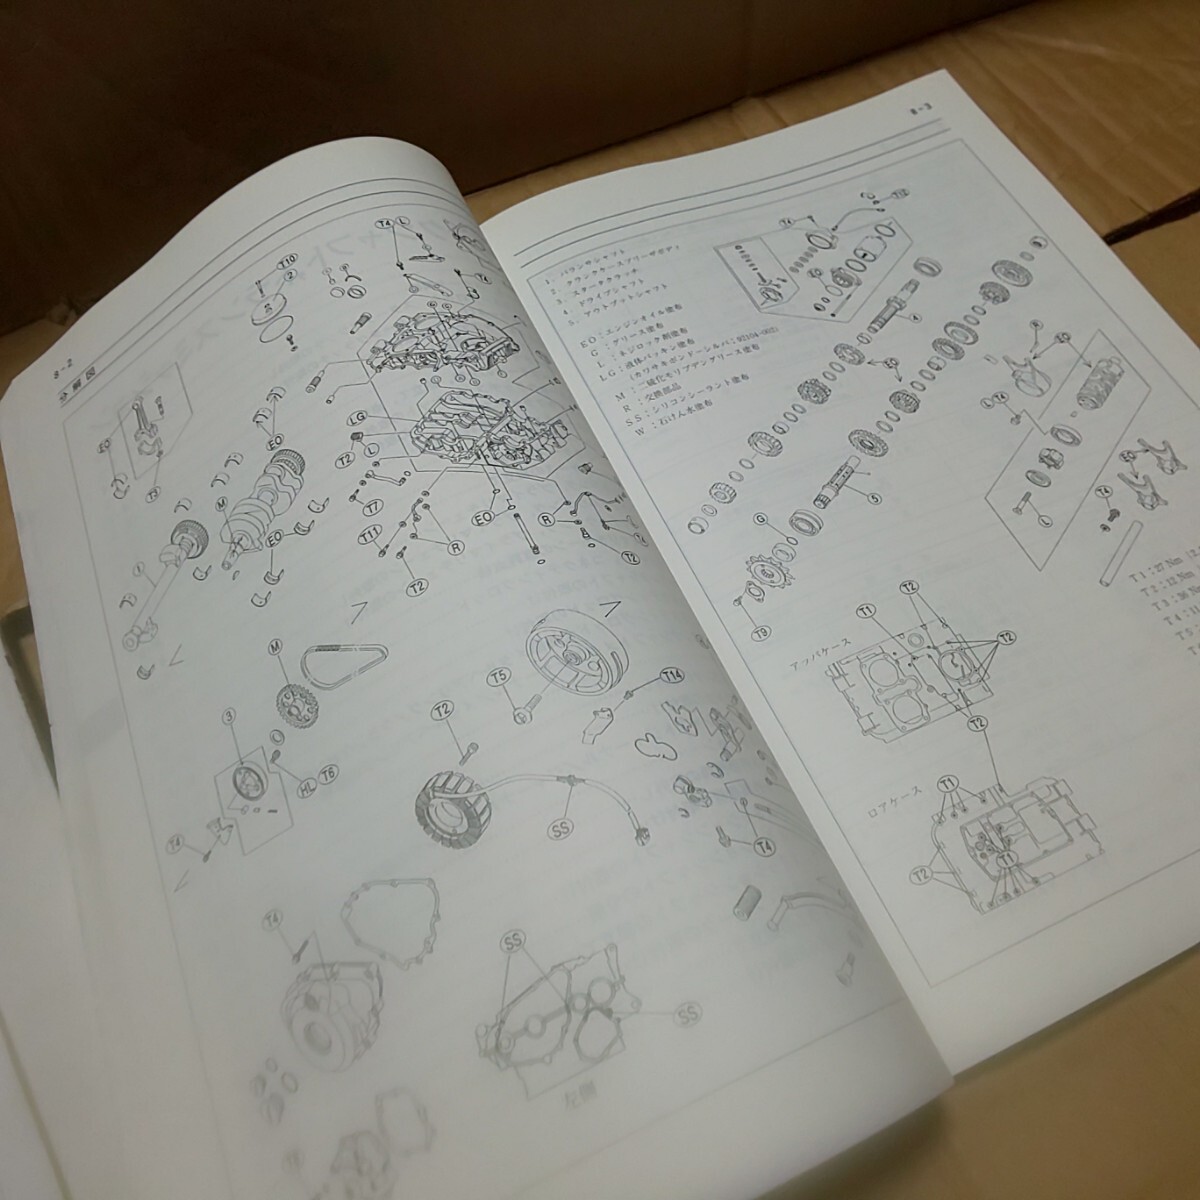 8-2
分解図
T10
2
T4
L
T4
EO
EO
T3
M
LG
T2
L
T7
T11
EO
R
T2
R
T2
EO
1
M
3
HL
T6
T4
T2
T5
T14
SS
T4
T4
SS
SS
左側
8-3
1. バランサシャフト
2. クランクケースブリーザボディ
3. スタータクラッチ
4. ドライブシャフト
5. アウトプットシャフト
EO：エンジンオイル塗布
G：グリース塗布
L：ネジロック剤塗布
LG：液体パッキン塗布
(カワサキボンド-シルバ：92104-002)
M：二硫化モリブデングリース塗布
R：交換部品
SS：シリコンシーラント塗布
W：石けん水塗布
T4
T12
4
5
G
T9
L
T4
L
T4
T1：27 Nm
T2：12 Nm
T3：36 Nm
T4：11
T5：
アッパケース
T1
T2
T2
T2
ロアケース
T1
T2
T1